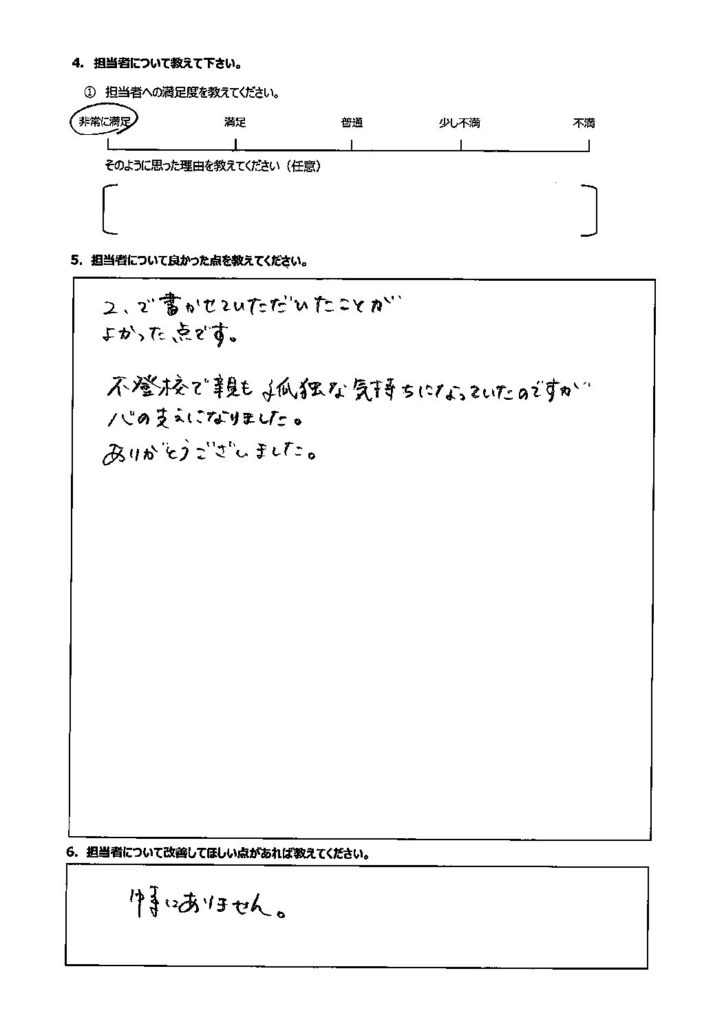 4. 担当者について教えて下さい。
① 担当者への満足度を教えてください。
非常に満足 満足 普通 少し不満 不満
そのように思った理由を教えてください（任意）
5. 担当者について良かった点を教えてください。
2、で書かせていただいたことが
よかった点です。
不登校で親も孤独な気持ちになっていたのですが
心の支えになりました。
ありがとうございました。
6. 担当者について改善してほしい点があれば教えてください。
特にありません。